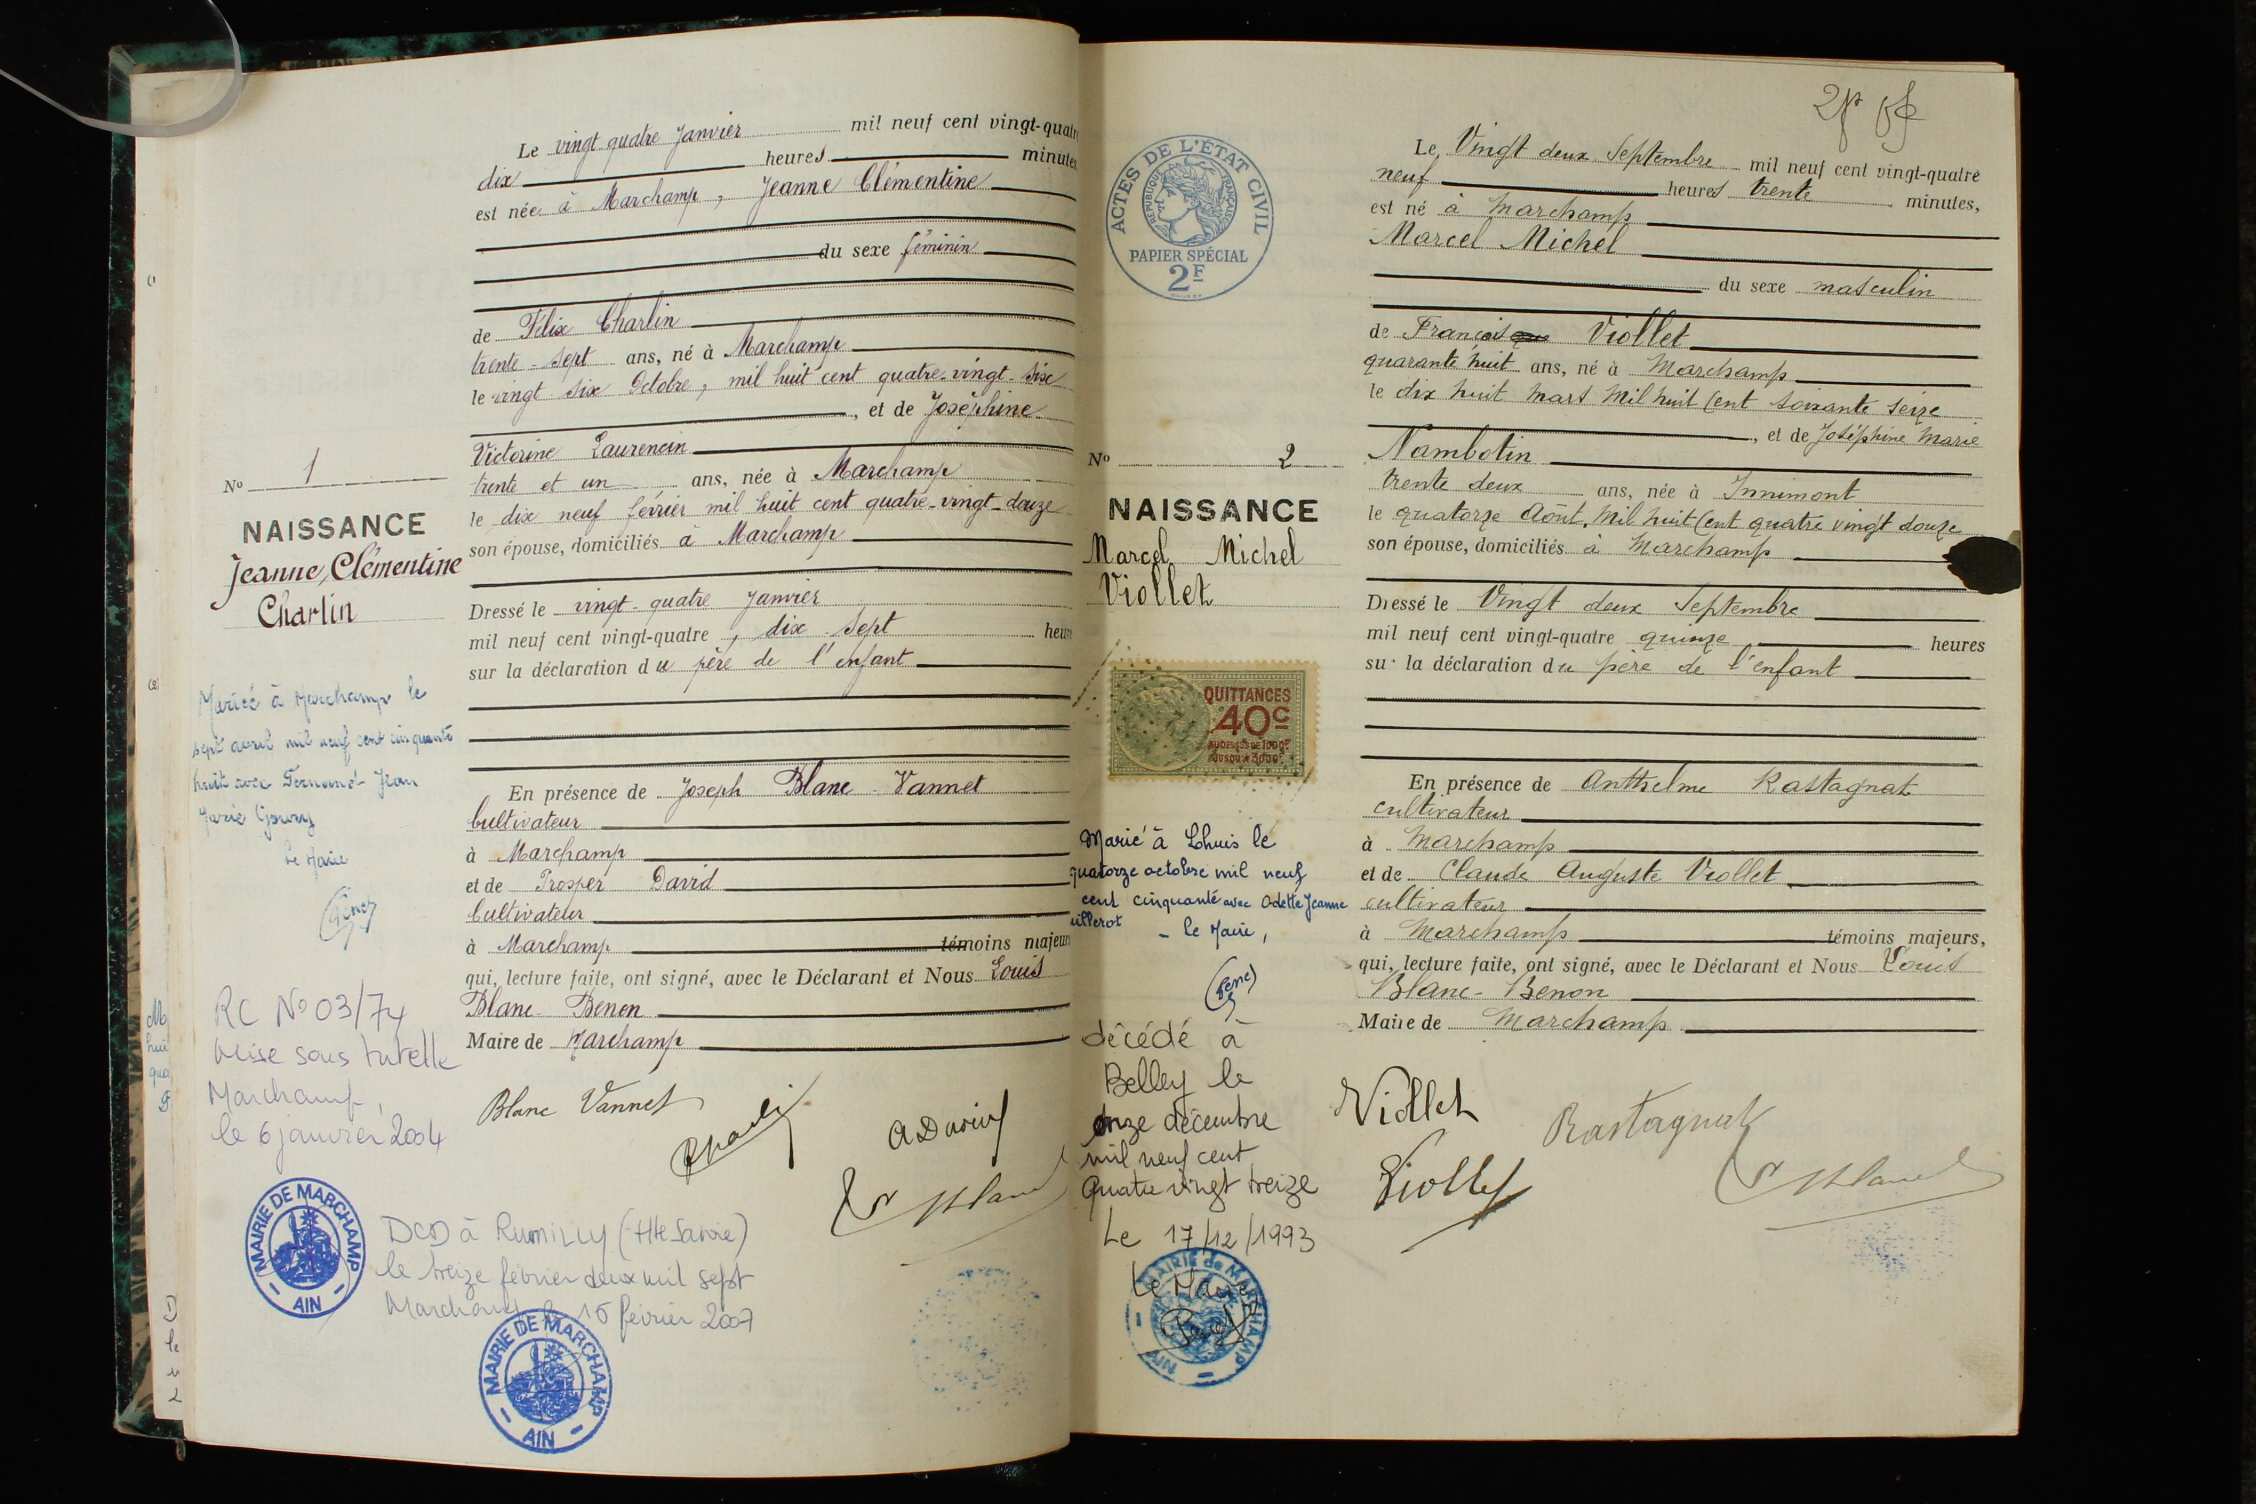 Le vingt quatre Janvier mil neuf cent vingt-quatre
dix heures minutes
est née à Marchamp, Jeanne Clémentine
du sexe féminin
de Félix Charlin
trente-sept ans, né à Marchamp
le vingt six Octobre, mil huit cent quatre-vingt-six
, et de Joséphine
Victorine Laurencin
trente et un ans, née à Marchamp
le dix neuf février mil huit cent quatre-vingt-douze
son épouse, domiciliés à Marchamp
Dressé le vingt-quatre Janvier
mil neuf cent vingt-quatre, dix sept heures
sur la déclaration du père de l'enfant
En présence de Joseph Blanc-Vannet
Cultivateur
à Marchamp
et de Prosper David
Cultivateur
à Marchamp témoins majeurs
qui, lecture faite, ont signé, avec le Déclarant et Nous Louis
Blanc-Benon
Maire de Marchamp
Blanc Vannet
No 1
NAISSANCE
Jeanne, Clémentine
Charlin
Mariée à Marchamp le
sept avril mil neuf cent cinquante
huit avec Fernand Jean
Marie
Le Maire
RC No 03/74
Mise sous tutelle
Marchamp,
le 6 janvier 2004
MAIRIE DE MARCHAMP
- AIN -
DCD à RUMILLY (Hte Savoie)
le treize février deux mil sept
Marchamp le 15 février 2007
MAIRIE DE MARCHAMP
- AIN -
ACTES DE L'ÉTAT CIVIL
RÉPUBLIQUE FRANÇAISE
PAPIER SPÉCIAL
2F
No 2
NAISSANCE
Marcel Michel
Viollet
QUITTANCES
40c
Marié à Lhuis le
quatorze octobre mil neuf
cent cinquante avec Odette Jeanne
- le Maire,
décédé à
Belley le
onze décembre
mil neuf cent
quatre vingt treize
Le 17/12/1993
Le Maire
MAIRIE de MARCHAMP
AIN
Le Vingt deux Septembre mil neuf cent vingt-quatre
neuf heures trente minutes,
est né à Marchamp
Marcel Michel
du sexe masculin
de François Viollet
quarante huit ans, né à Marchamp
le dix huit Mars Mil huit Cent soixante seize
, et de Joséphine Marie
Nambotin
trente deux ans, née à Innimont
le quatorze Août, Mil huit Cent quatre vingt douze
son épouse, domiciliés à Marchamp
Dressé le Vingt deux Septembre
mil neuf cent vingt-quatre quinze heures
sur la déclaration du père de l'enfant
En présence de Anthelme Rastagnat
cultivateur
à Marchamp
et de Claude Auguste Viollet
cultivateur
à Marchamp témoins majeurs,
qui, lecture faite, ont signé, avec le Déclarant et Nous Louis
Blanc-Benon
Maire de Marchamp
Viollet
Rastagnat
Viollet